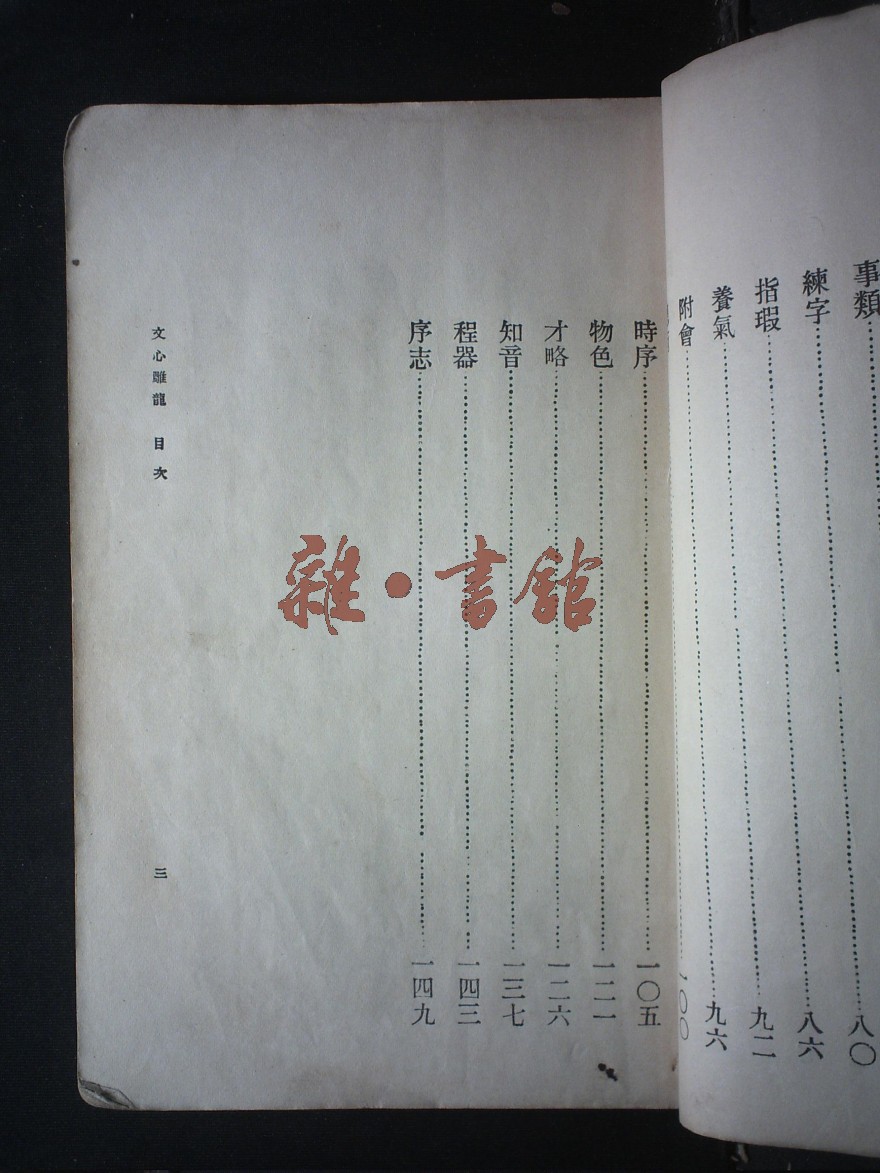 事類……八〇
練字……八六
指瑕……九二
養氣……九六
附會……一〇〇
時序……一〇五
物色……一二一
才略……一二六
知音……一三七
程器……一四三
序志……一四九
文心雕龍 目次 三
雜·書館